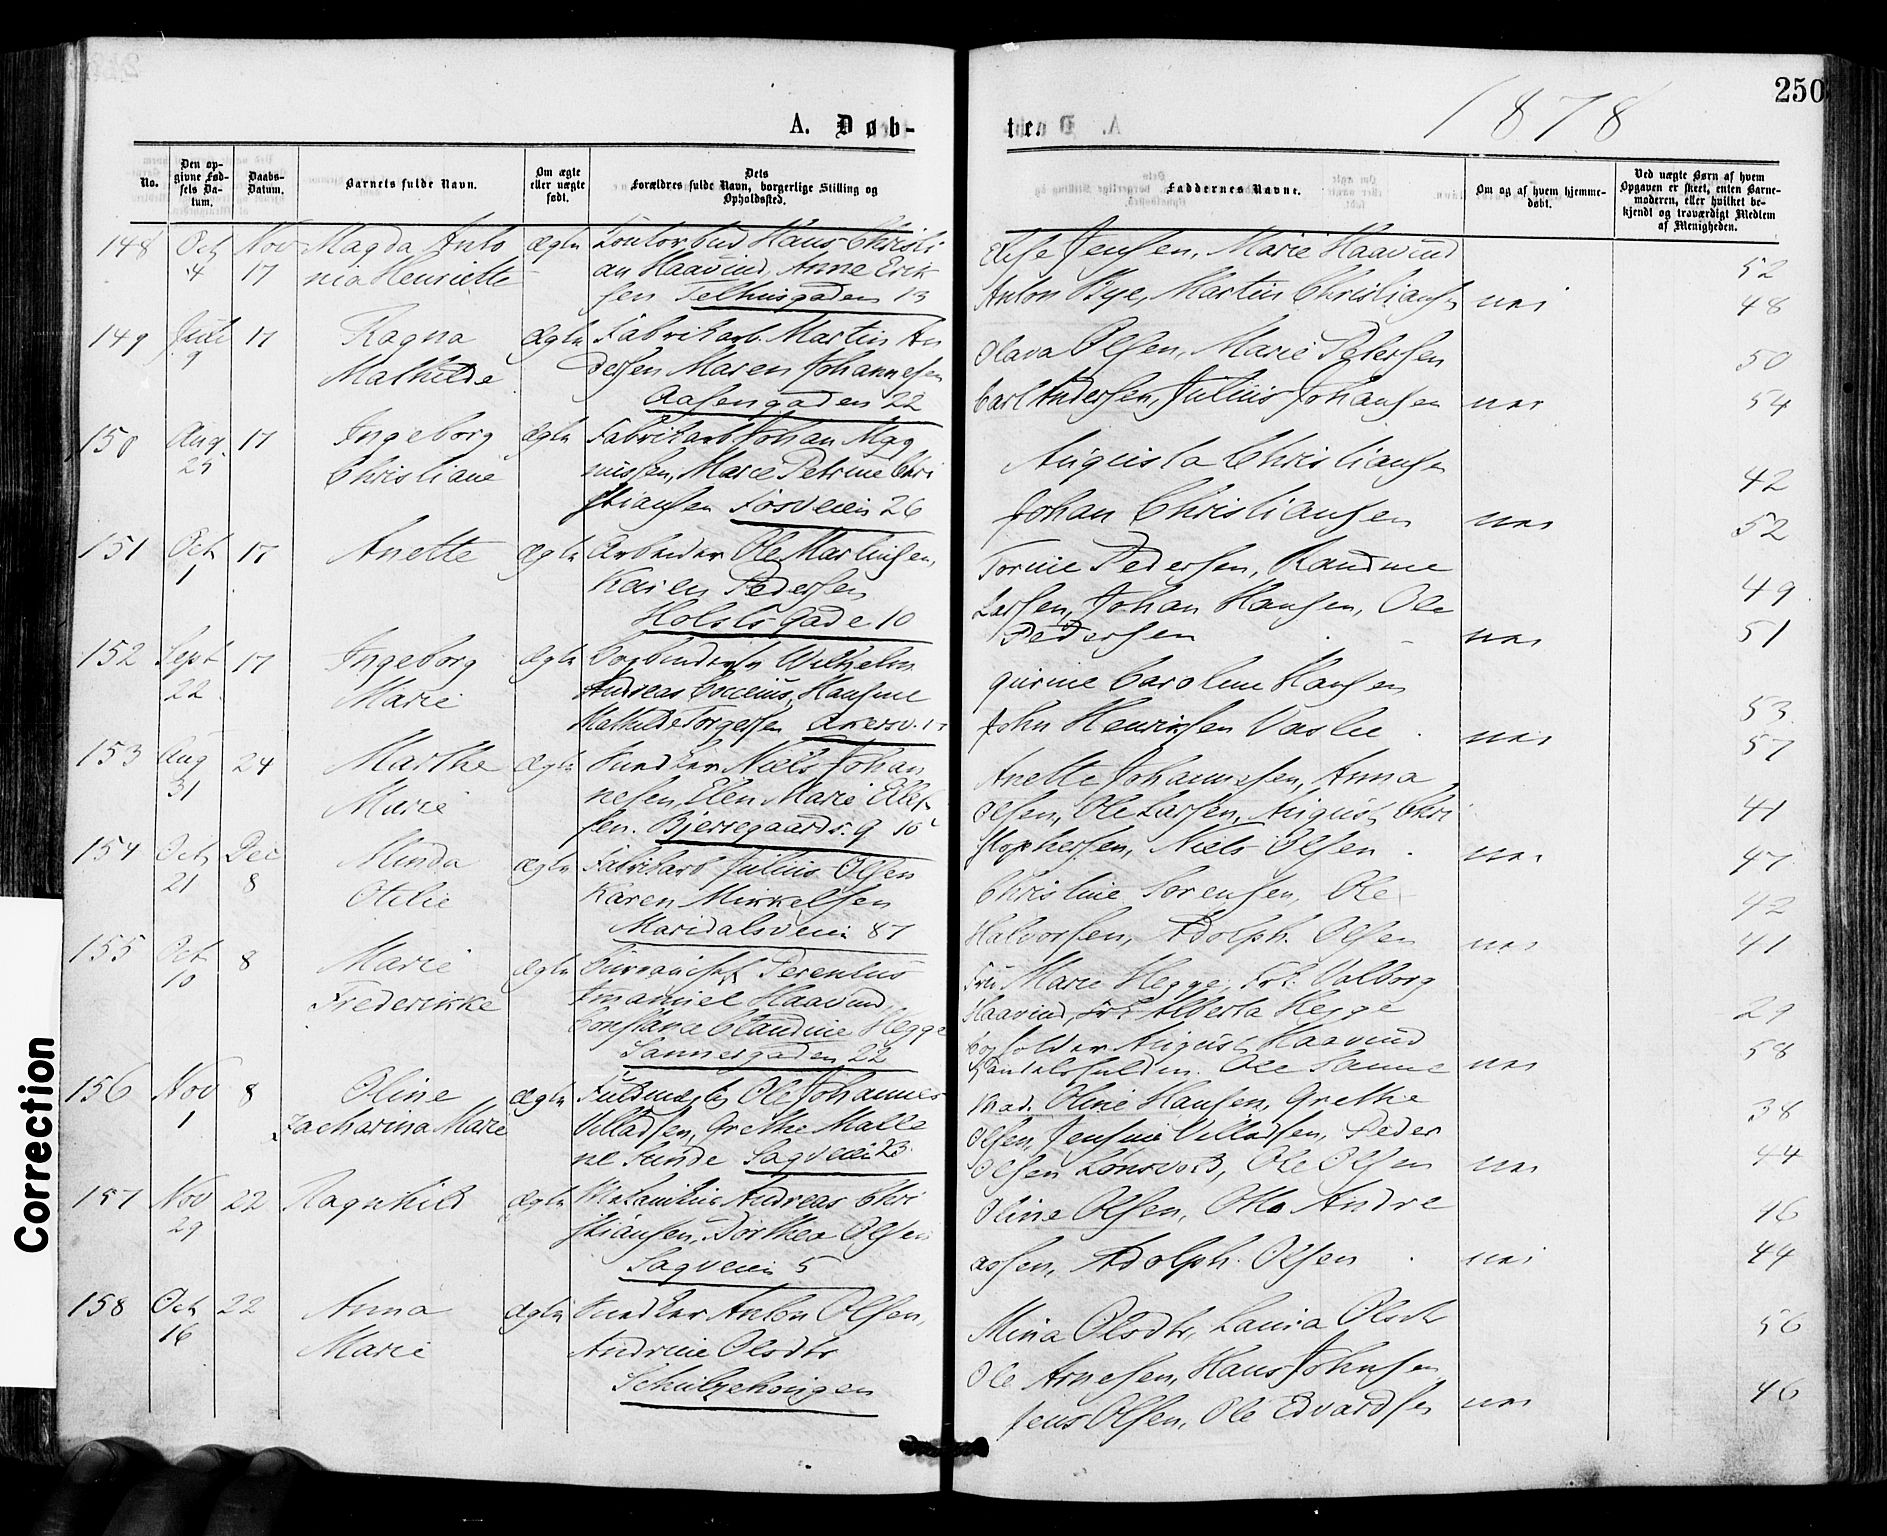 250
1878
A. Døb-
ter.
No.
Den op-
givne Fød-
sels Da-
tum.
Daabs-
Datum.
Barnets fulde Navn.
Om ægte
eller uægte
født.
Dets
Forældres fulde Navn, borgerlige Stilling og
Opholdssted.
Faddernes Navne.
Om og af hvem hjemme-
døbt.
Ved uægte Børn af hvem
Opgaven er skeet, enten Barne-
moderen, eller hvilket be-
kjendt og troværdigt Medlem
af Menigheden.
148 Oct Nov Magda Anto ægte Contorbud Hans Christi
4 17 nia Henriette an Haavind, Anne Erik
sen Telthusgaden 13
Else Jensen, Marie Haavind 52
Anton Bye, Martin Christiansen nei 48
149 Juli 17 Ragna ægte Fabrikarb. Martin An
9 Mathilde dersen Maren Johannesen
Aasengaden 22
Olava Olsen, Marie Petersen 50
Carl Andersen, Julius Johansen nei 54
150 Aug 17 Ingeborg ægte Fabrikarb Johan Mag
25 Christiane nussen, Marie Petrine Chri
stiansen Fosveien 26
Augusta Christiansen 42
Johan Christiansen nei 52
151 Oct 17 Anette ægte Arbeider Ole Martinsen,
1 Karen Pedersen
Holsts Gade 10
Torine Pedersen, Randine 49
Larsen, Johan Hansen, Ole
Pedersen nei 51
152 Sept 17 Ingeborg ægte Bogbinder Wilhelm
22 Marie Andreas Cocceius, Hansine
Mathilde Torgersen
Caroline Hansen 53
John Henriksen nei 57
153 Aug 24 Marthe ægte Snedker Niels Johan
31 Marie nesen, Elen Marie Ellef
sen. Bjerregaards. g
Anette Johannesen, Anna
Olsen, Ole Larsen, August Chri 41
stophersen, Niels Olsen nei 47
154 Oct Dec Minda ægte Fabrikarb Julius Olsen
21 8 Otilie Karen Mikkelsen
Maridalsveien 87
Christine Sorensen, Ole 42
Halvorsen, Adolph. Olsen nei 41
155 Oct 8 Marie ægte Terentius
10 Frederikke Imanuel Haavind,
Constance Claudine Hegge
Sannergaden 22
Fru Marie Hegge, Frk. Valborg
Haavind, Frk Alberta Hegge 29
Bogholder August Haavind
Ole Sanne nei 58
156 Nov 8 Oline ægte Fuldmægtig Ole Johannes
1 Zacharina Marie Villadsen, Grethe Malle
ne Sunde Sagveien 23
Mad. Oline Hansen, Grethe 38
Olsen, Jensine Villadsen, Peder
Olsen Lønvold, Ole Olsen nei 44
157 Nov 22 Ragnhild ægte Mekanikus Andreas Chri
29 stiansen, Dorthea Olsen
Sagveien 5
Oline Olsen, Otto Andre 46
assen, Adolph. Olsen nei 44
158 Oct 22 Anna ægte Snedker Anton Olsen,
16 Marie Andrine Olsdtr
Schultzehougen
Mina Olsdtr, Laura Olsdtr 56
Ole Arnesen, Hans Johnsen
Jens Olsen, Ole Edvardsen nei 46
Correction